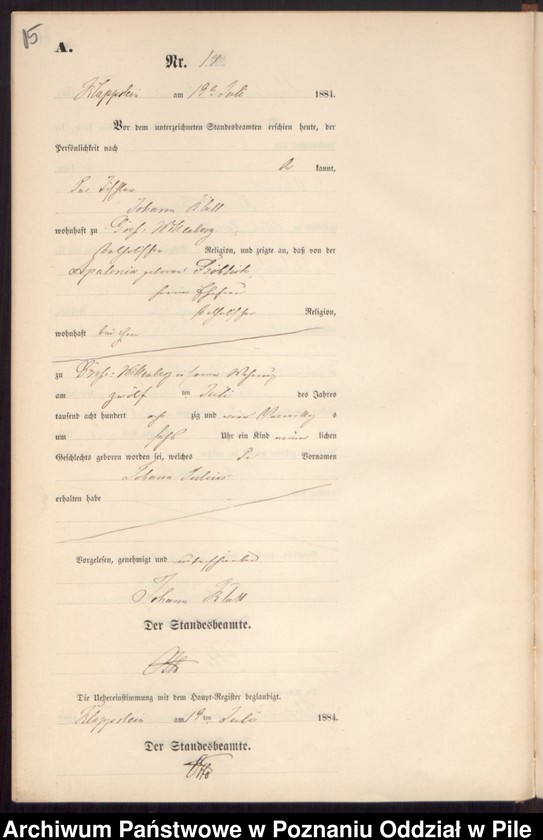 15
A.
Nr. 14
Klappstein am 19ten Juli 1884.
Vor dem unterzeichneten Standesbeamten erschien heute, der
Persönlichkeit nach
kannt,
Johann Klatt
wohnhaft zu Groß-Wittenberg
katholischer Religion, und zeigte an, daß von der
Apolonia geborene
seiner Ehefrau
katholischer Religion,
wohnhaft bei ihm
zu Groß-Wittenberg in seiner Wohnung
am zwölf ten Juli des Jahres
tausend acht hundert acht zig und vier Vormittags
um sechs Uhr ein Kind männ lichen
Geschlechts geboren worden sei, welches die Vornamen
Johann Julius
erhalten habe
Vorgelesen, genehmigt und unterschrieben
Johann Klatt
Der Standesbeamte.
Otto
Die Uebereinstimmung mit dem Haupt-Register beglaubigt.
Klappstein am 19ten Juli 1884.
Der Standesbeamte.
Otto
Archiwum Państwowe w Poznaniu Oddział w Pile